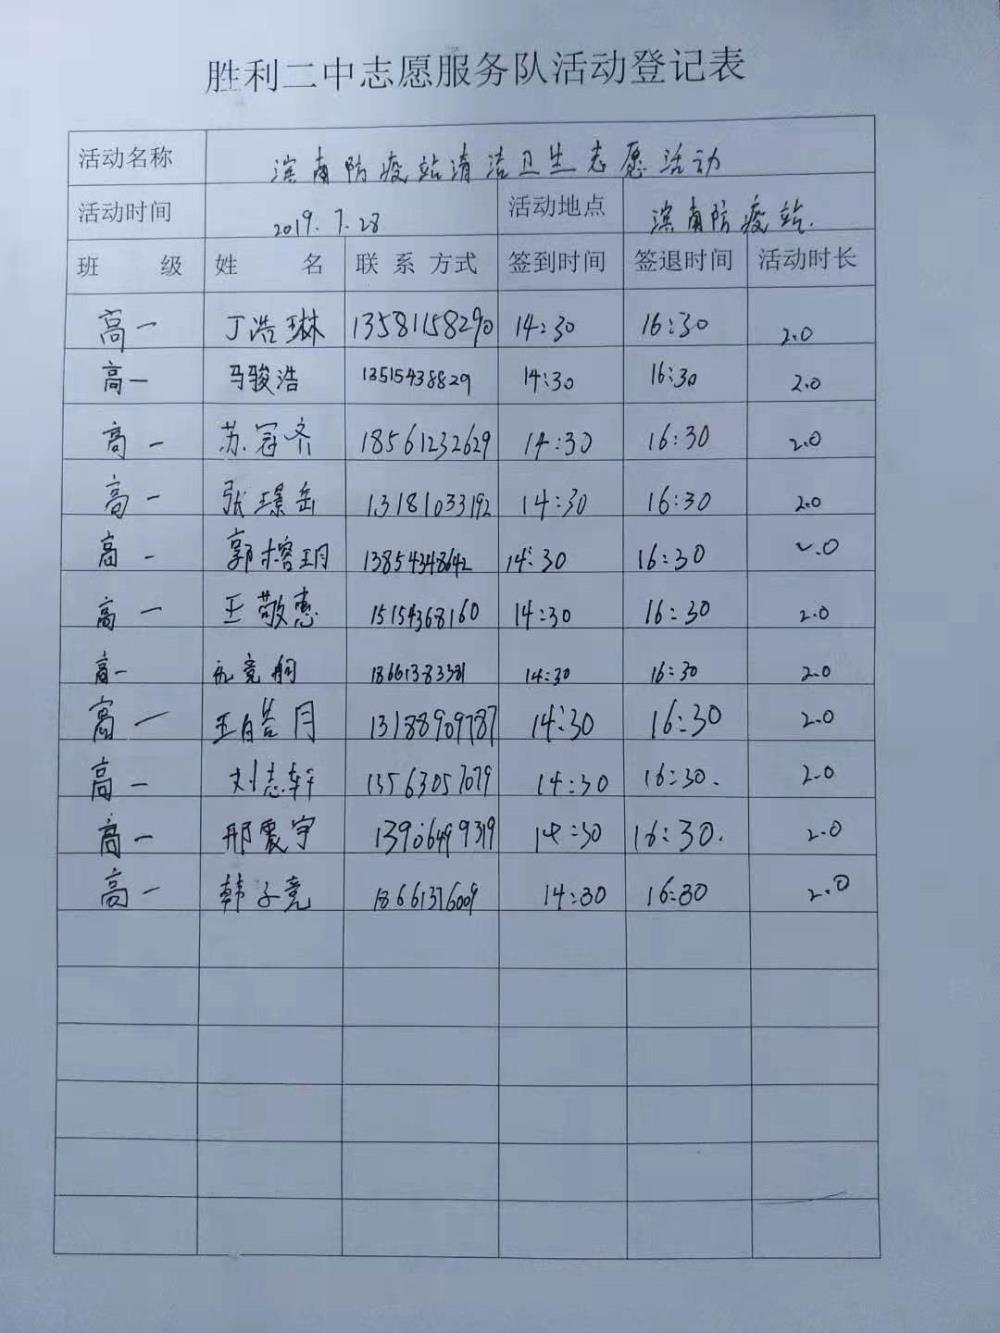 胜利二中志愿服务队活动登记表
活动名称 滨南防疫站清洁卫生志愿活动
活动时间 2019.7.28 活动地点 滨南防疫站.
班 级 姓 名 联系方式 签到时间 签退时间 活动时长
高一 丁浩琳 13581158290 14:30 16:30 2.0
高一 马骏浩 13515438829 14:30 16:30 2.0
高一 苏冠齐 18561232629 14:30 16:30 2.0
高一 张璟岳 13181033192 14:30 16:30 2.0
高一 郭榕玥 13854348642 14:30 16:30 2.0
高一 王敬惠 15154368160 14:30 16:30 2.0
高一 14:30 16:30 2.0
高一 王皓月 13188909787 14:30 16:30 2.0
高一 刘志轩 13563057079 14:30 16:30. 2.0
高一 邢震宇 13906499319 14:30 16:30. 2.0
高一 韩子竞 18661376009 14:30 16:30 2.0